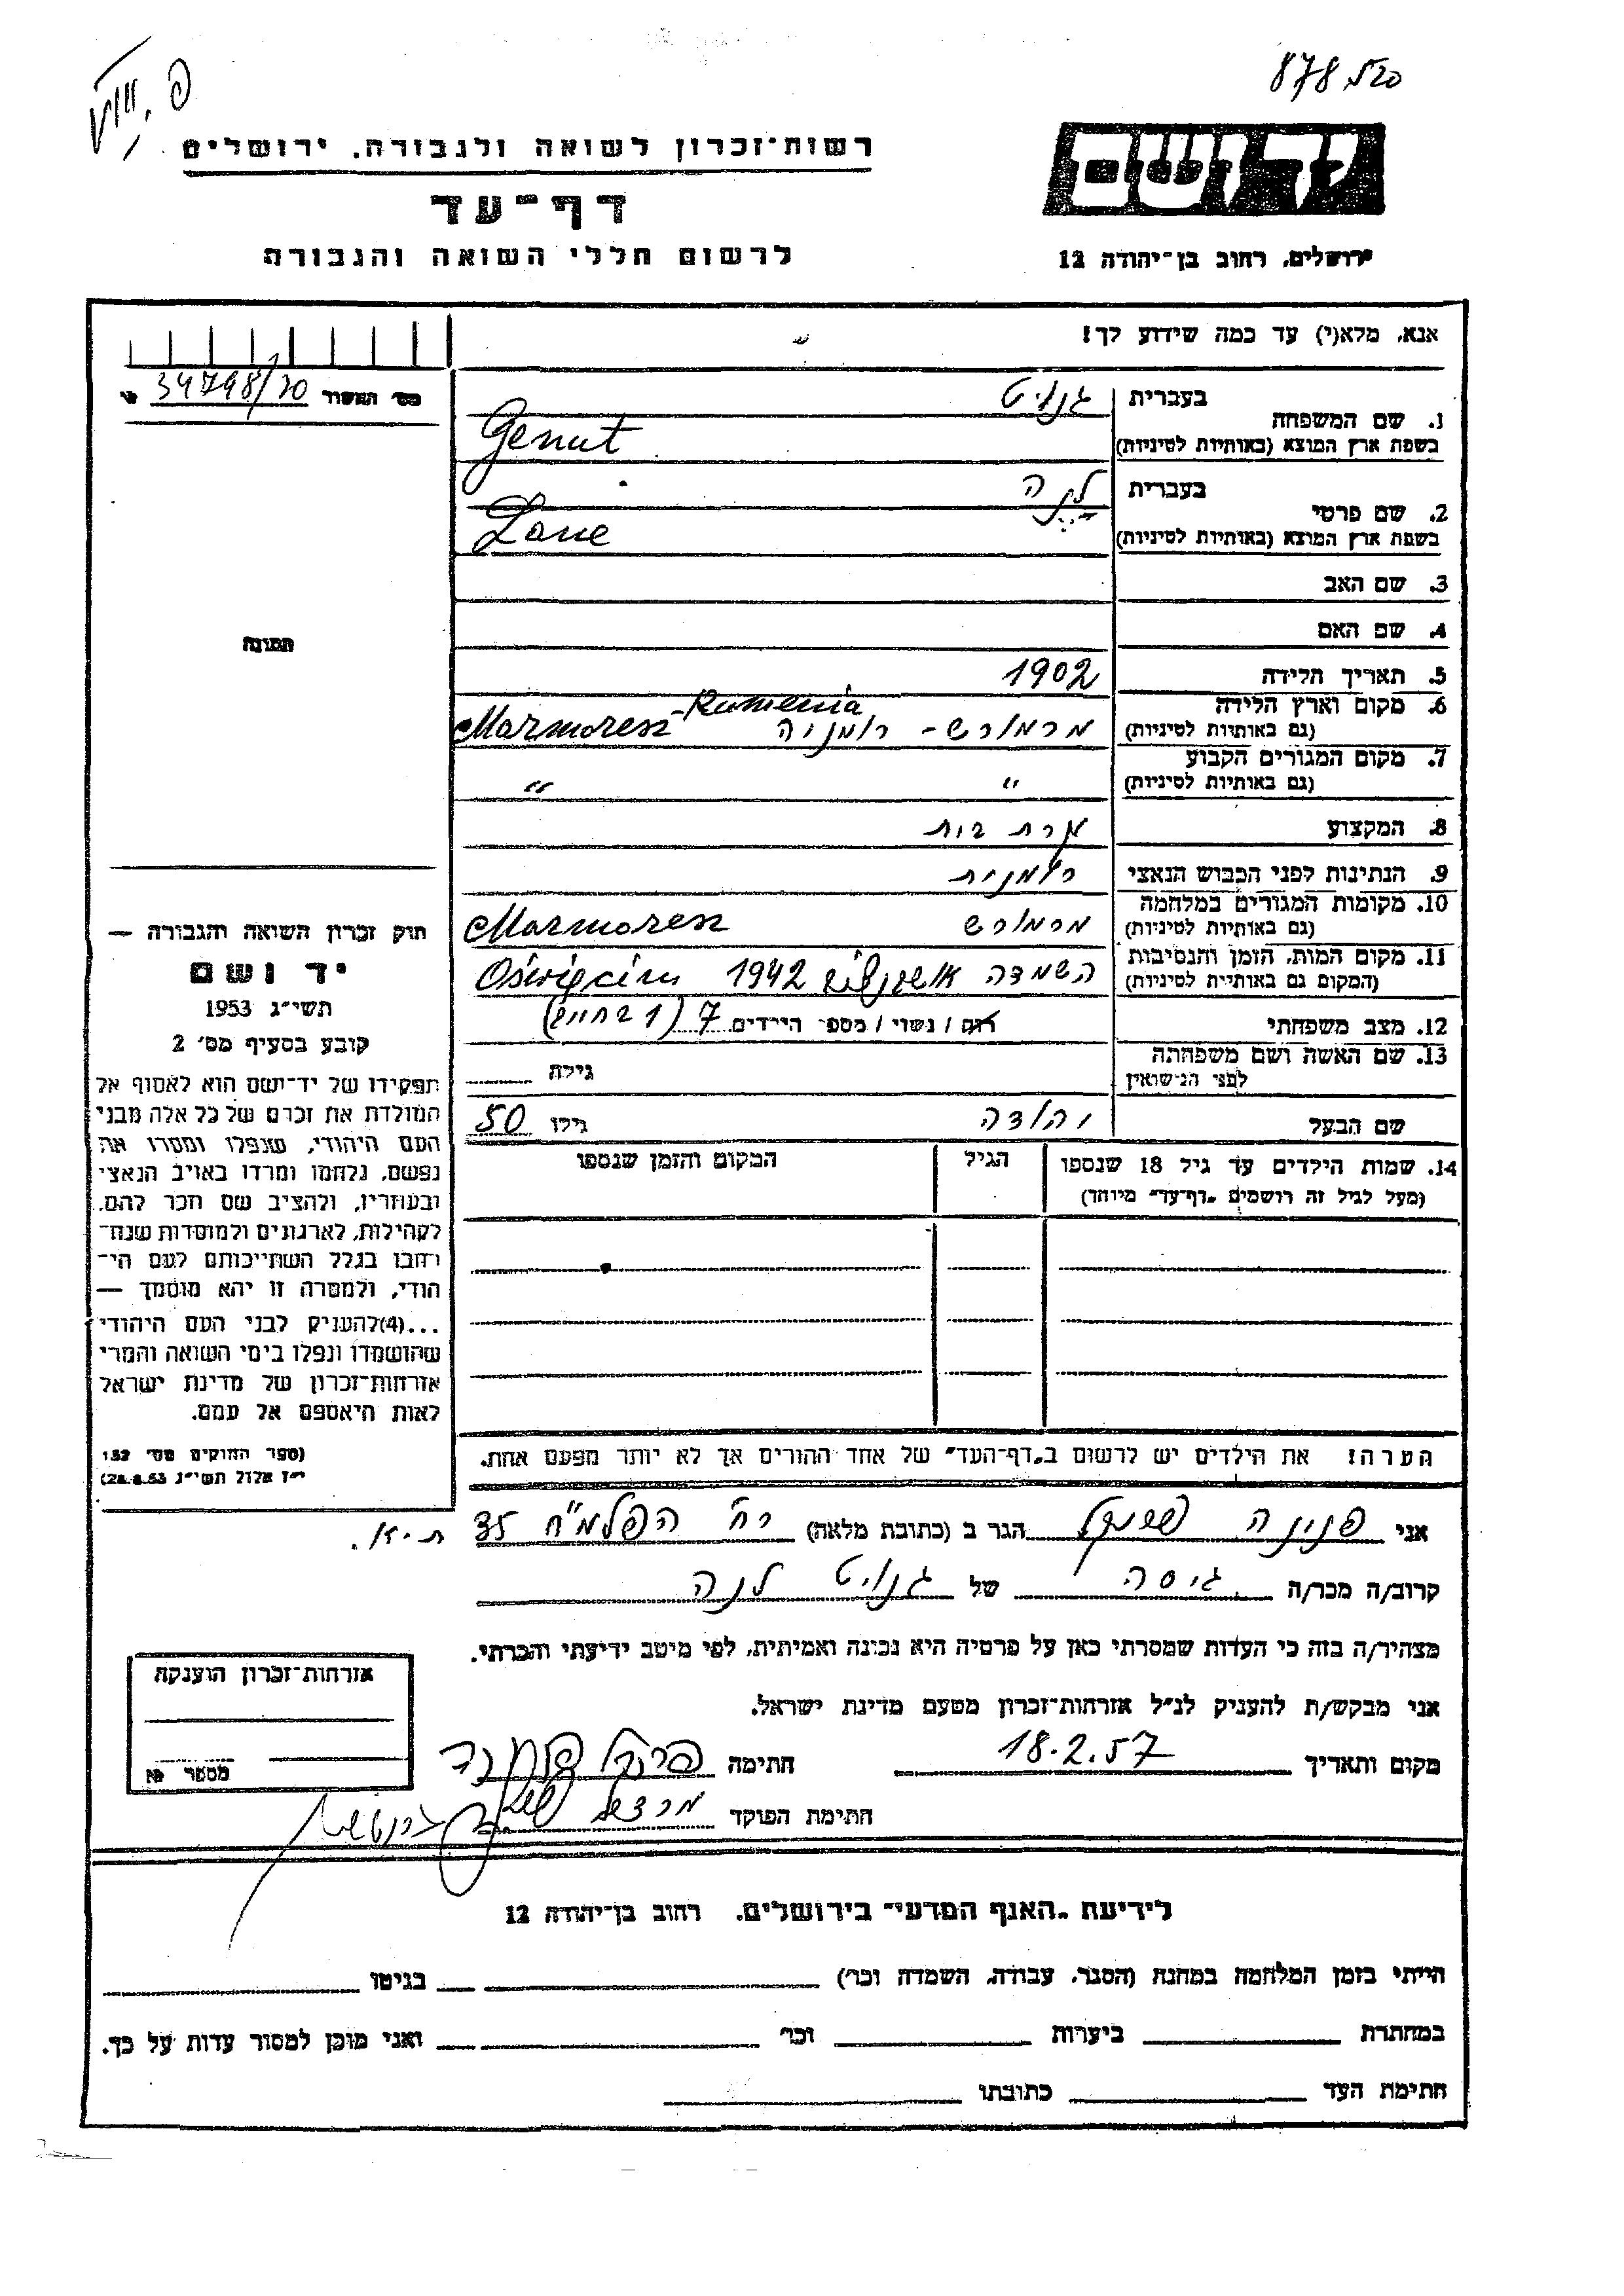 878
רשות־זכרון לשואה ולגבורה, ירושלים
דף־עד
לרשום חללי השואה והגבורה
יד ושם
ירושלים, רחוב בן־יהודה 12
אנא, מלא(י) עד כמה שידוע לך!
מס' 34798/20
1. שם המשפחה
בעברית גנויט
בשפת ארץ המוצא (באותיות לטיניות) Genut
2. שם פרטי
בעברית לנה
בשפת ארץ המוצא (באותיות לטיניות)
3. שם האב
4. שם האם
תמונה
5. תאריך הלידה 1902
6. מקום וארץ הלידה מרמורש - רומניה Marmoresz - Rumenia
(גם באותיות לטיניות)
7. מקום המגורים הקבוע " "
(גם באותיות לטיניות)
8. המקצוע עקרת בית
9. הנתינות לפני הכבוש הנאצי רומנית
10. מקומות המגורים במלחמה מרמורש Marmoresz
(גם באותיות לטיניות)
11. מקום המות, הזמן והנסיבות השמדה אושוויץ 1942 Oświęcim
(המקום גם באותיות לטיניות)
12. מצב משפחתי רווק / נשוי / מספר הילדים 7 (1 בחיים)
13. שם האשה ושם משפחתה גילה
לפני הנישואין
שם הבעל יהודה גילו 50
14. שמות הילדים עד גיל 18 שנספו הגיל המקום והזמן שנספו
(מעל לגיל זה רושמים "דף־עד" מיוחד)
הערה! את הילדים יש לרשום ב"דף־העד" של אחד ההורים אך לא יותר מפעם אחת.
חוק זכרון השואה והגבורה —
יד ושם
תשי"ג 1953
קובע בסעיף מס' 2
תפקידו של יד־ושם הוא לאסוף אל
המולדת את זכרם של כל אלה מבני
העם היהודי, שנפלו ומסרו את
נפשם, נלחמו ומרדו באויב הנאצי
ובעוזריו, ולהציב שם וזכר להם,
לקהילות, לארגונים ולמוסדות שנח־
רבו בגלל השתייכותם לעם הי־
הודי, ולמטרה זו יהא מוסמך —
...(4) להעניק לבני העם היהודי
שהושמדו ונפלו בימי השואה והמרי
אזרחות־זכרון של מדינת ישראל
לאות היאספם אל עמם.
(ספר החוקים מס' 132
י"ז אלול תשי"ג 28.8.53)
אני פנינה הגר ב (כתובת מלאה) רח' הפלמ"ח 35 ת-א.
קרוב/ה מכר/ה גיסה של גנויט לנה
מצהיר/ה בזה כי העדות שמסרתי כאן על פרטיה היא נכונה ואמיתית, לפי מיטב ידיעתי והכרתי.
אני מבקש/ת להעניק לנ"ל אזרחות־זכרון מטעם מדינת ישראל.
מקום ותאריך 18.2.57 חתימה
חתימת הפוקד
אזרחות־זכרון הוענקה
מספר
לידיעת "האגף המדעי" בירושלים, רחוב בן־יהודה 12
הייתי בזמן המלחמה במחנה (הסגר, עבודה, השמדה וכו') בגיטו
במחתרת ביערות וכו' ואני מוכן למסור עדות על כך.
חתימת העד כתובתו